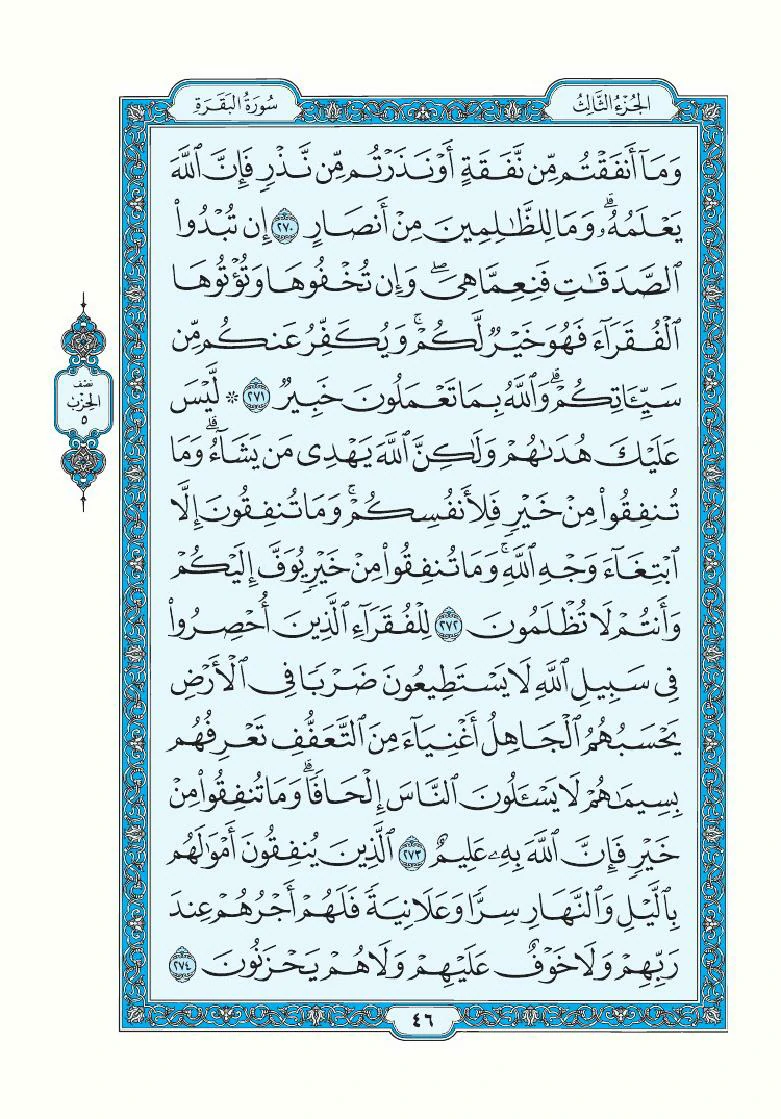 الجزء الثالث
سورة البقرة
وَمَآ أَنفَقۡتُم مِّن نَّفَقَةٍ أَوۡ نَذَرۡتُم مِّن نَّذۡرٖ فَإِنَّ ٱللَّهَ
يَعۡلَمُهُۥۗ وَمَا لِلظَّٰلِمِينَ مِنۡ أَنصَارٍ ٢٧٠ إِن تُبۡدُواْ
ٱلصَّدَقَٰتِ فَنِعِمَّا هِيَۖ وَإِن تُخۡفُوهَا وَتُؤۡتُوهَا
ٱلۡفُقَرَآءَ فَهُوَ خَيۡرٞ لَّكُمۡۚ وَيُكَفِّرُ عَنكُم مِّن
سَيِّـَٔاتِكُمۡۗ وَٱللَّهُ بِمَا تَعۡمَلُونَ خَبِيرٞ ٢٧١ * لَّيۡسَ
عَلَيۡكَ هُدَىٰهُمۡ وَلَٰكِنَّ ٱللَّهَ يَهۡدِي مَن يَشَآءُۗ وَمَا
تُنفِقُواْ مِنۡ خَيۡرٖ فَلِأَنفُسِكُمۡۚ وَمَا تُنفِقُونَ إِلَّا
ٱبۡتِغَآءَ وَجۡهِ ٱللَّهِۚ وَمَا تُنفِقُواْ مِنۡ خَيۡرٖ يُوَفَّ إِلَيۡكُمۡ
وَأَنتُمۡ لَا تُظۡلَمُونَ ٢٧٢ لِلۡفُقَرَآءِ ٱلَّذِينَ أُحۡصِرُواْ
فِي سَبِيلِ ٱللَّهِ لَا يَسۡتَطِيعُونَ ضَرۡبٗا فِي ٱلۡأَرۡضِ
يَحۡسَبُهُمُ ٱلۡجَاهِلُ أَغۡنِيَآءَ مِنَ ٱلتَّعَفُّفِ تَعۡرِفُهُم
بِسِيمَٰهُمۡ لَا يَسۡـَٔلُونَ ٱلنَّاسَ إِلۡحَافٗاۗ وَمَا تُنفِقُواْ مِنۡ
خَيۡرٖ فَإِنَّ ٱللَّهَ بِهِۦ عَلِيمٌ ٢٧٣ ٱلَّذِينَ يُنفِقُونَ أَمۡوَٰلَهُم
بِٱلَّيۡلِ وَٱلنَّهَارِ سِرّٗا وَعَلَانِيَةٗ فَلَهُمۡ أَجۡرُهُمۡ عِندَ
رَبِّهِمۡ وَلَا خَوۡفٌ عَلَيۡهِمۡ وَلَا هُمۡ يَحۡزَنُونَ ٢٧٤
نصف
الحزب
٥
٤٦